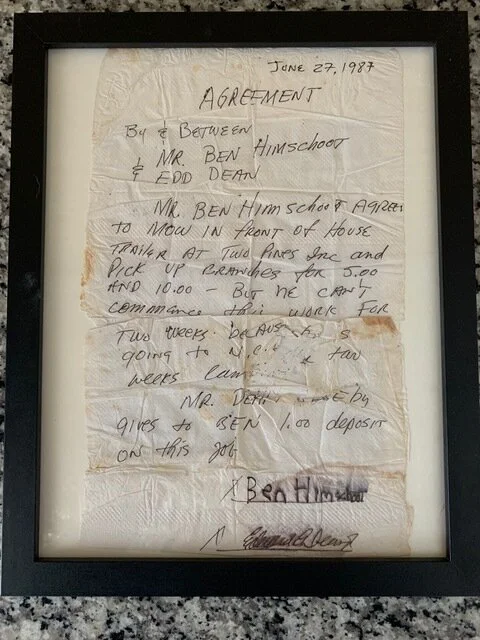 JUNE 27, 1987
AGREEMENT
BY & BETWEEN
MR. BEN HIMSCHOOT
& EDD DEAN
MR. BEN HIMSCHOOT AGREE
TO MOW IN FRONT OF HOUSE
TRAILER AT TWO PINES INC and
PICK UP BRANCHES for 5.00
AND 10.00 - BUT HE CAN'T
commence this WORK FOR
TWO WEEKS
going to two
weeks
MR. DEAN
gives to BEN 1.00 deposit
ON this job
X Ben Himschoot